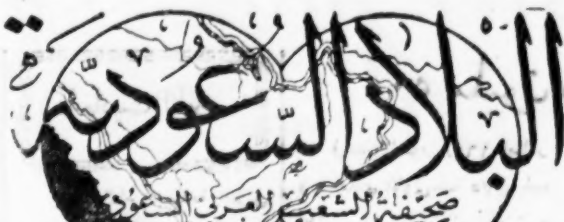 البلاد السعودية
صحيفة الشعب العربي السعودي